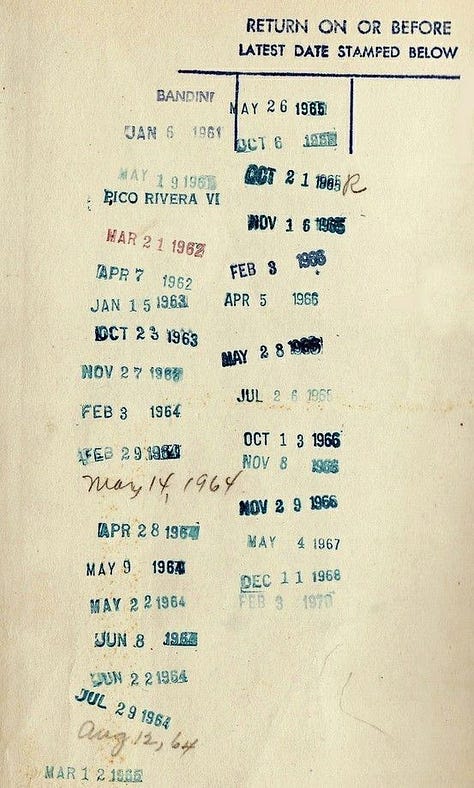 RETURN ON OR BEFORE
LATEST DATE STAMPED BELOW
BANDINI
JAN 6 1961
MAY 19
PICO RIVERA VI
MAR 21 1962
APR 7 1962
JAN 15 1963
OCT 23 1963
NOV 27 1963
FEB 3 1964
FEB 29 1964
Mar, 14, 1964
APR 28 1964
MAY 9 1964
MAY 22 1964
JUN 8 1964
JUN 22 1964
JUL 29 1964
Aug 12, 64
MAR 12 1965
MAY 26 1965
OCT 6 1965
OCT 21 1965 R
NOV 16 1965
FEB 3 1966
APR 5 1966
MAY 28 1966
JUL 26 1966
OCT 13 1966
NOV 8 1966
NOV 29 1966
MAY 4 1967
DEC 11 1968
FEB 3 1970